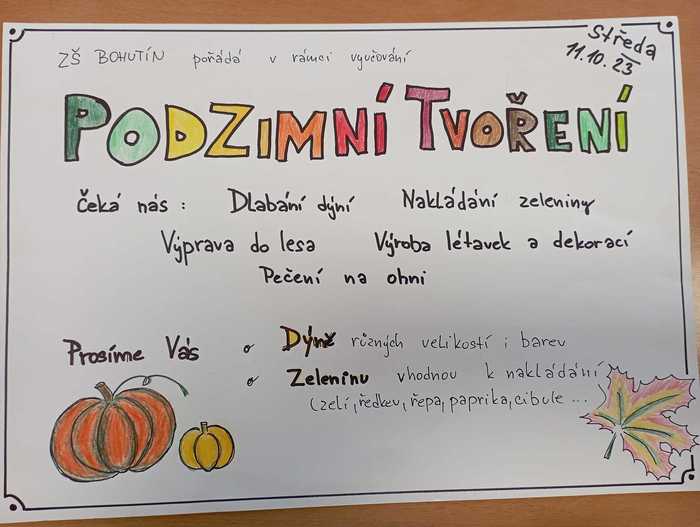 ZŠ BOHUTÍN pořádá v rámci vyučování
Středa
11.10.23
PODZIMNÍ TVOŘENÍ
Čeká nás: Dlabání dýní Nakládání zeleniny
Výprava do lesa Výroba létavek a dekorací
Pečení na ohni
Prosíme Vás o Dýně různých velikostí i barev
o Zeleninu vhodnou k nakládání
(zelí, ředkev, řepa, paprika, cibule ...